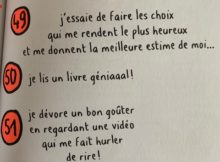 49
j'essaie de faire les choix
qui me rendent le plus heureux
et me donnent la meilleure estime de moi...
50
je lis un livre géniaaal!
51
je dévore un bon goûter
en regardant une vidéo
qui me fait hurler
de rire!